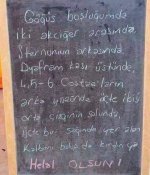 Göğüs boşluğumda
iki akciğer arasında,
Sternumun arkasında
Diyafram kası üstünde
4,5-6 Costae'ların
arka yüzünde
orta çizginin solunda,
üçte bir sağında yer alan
Kalbimi bulup da kırdın ya
Helal OLSUN!